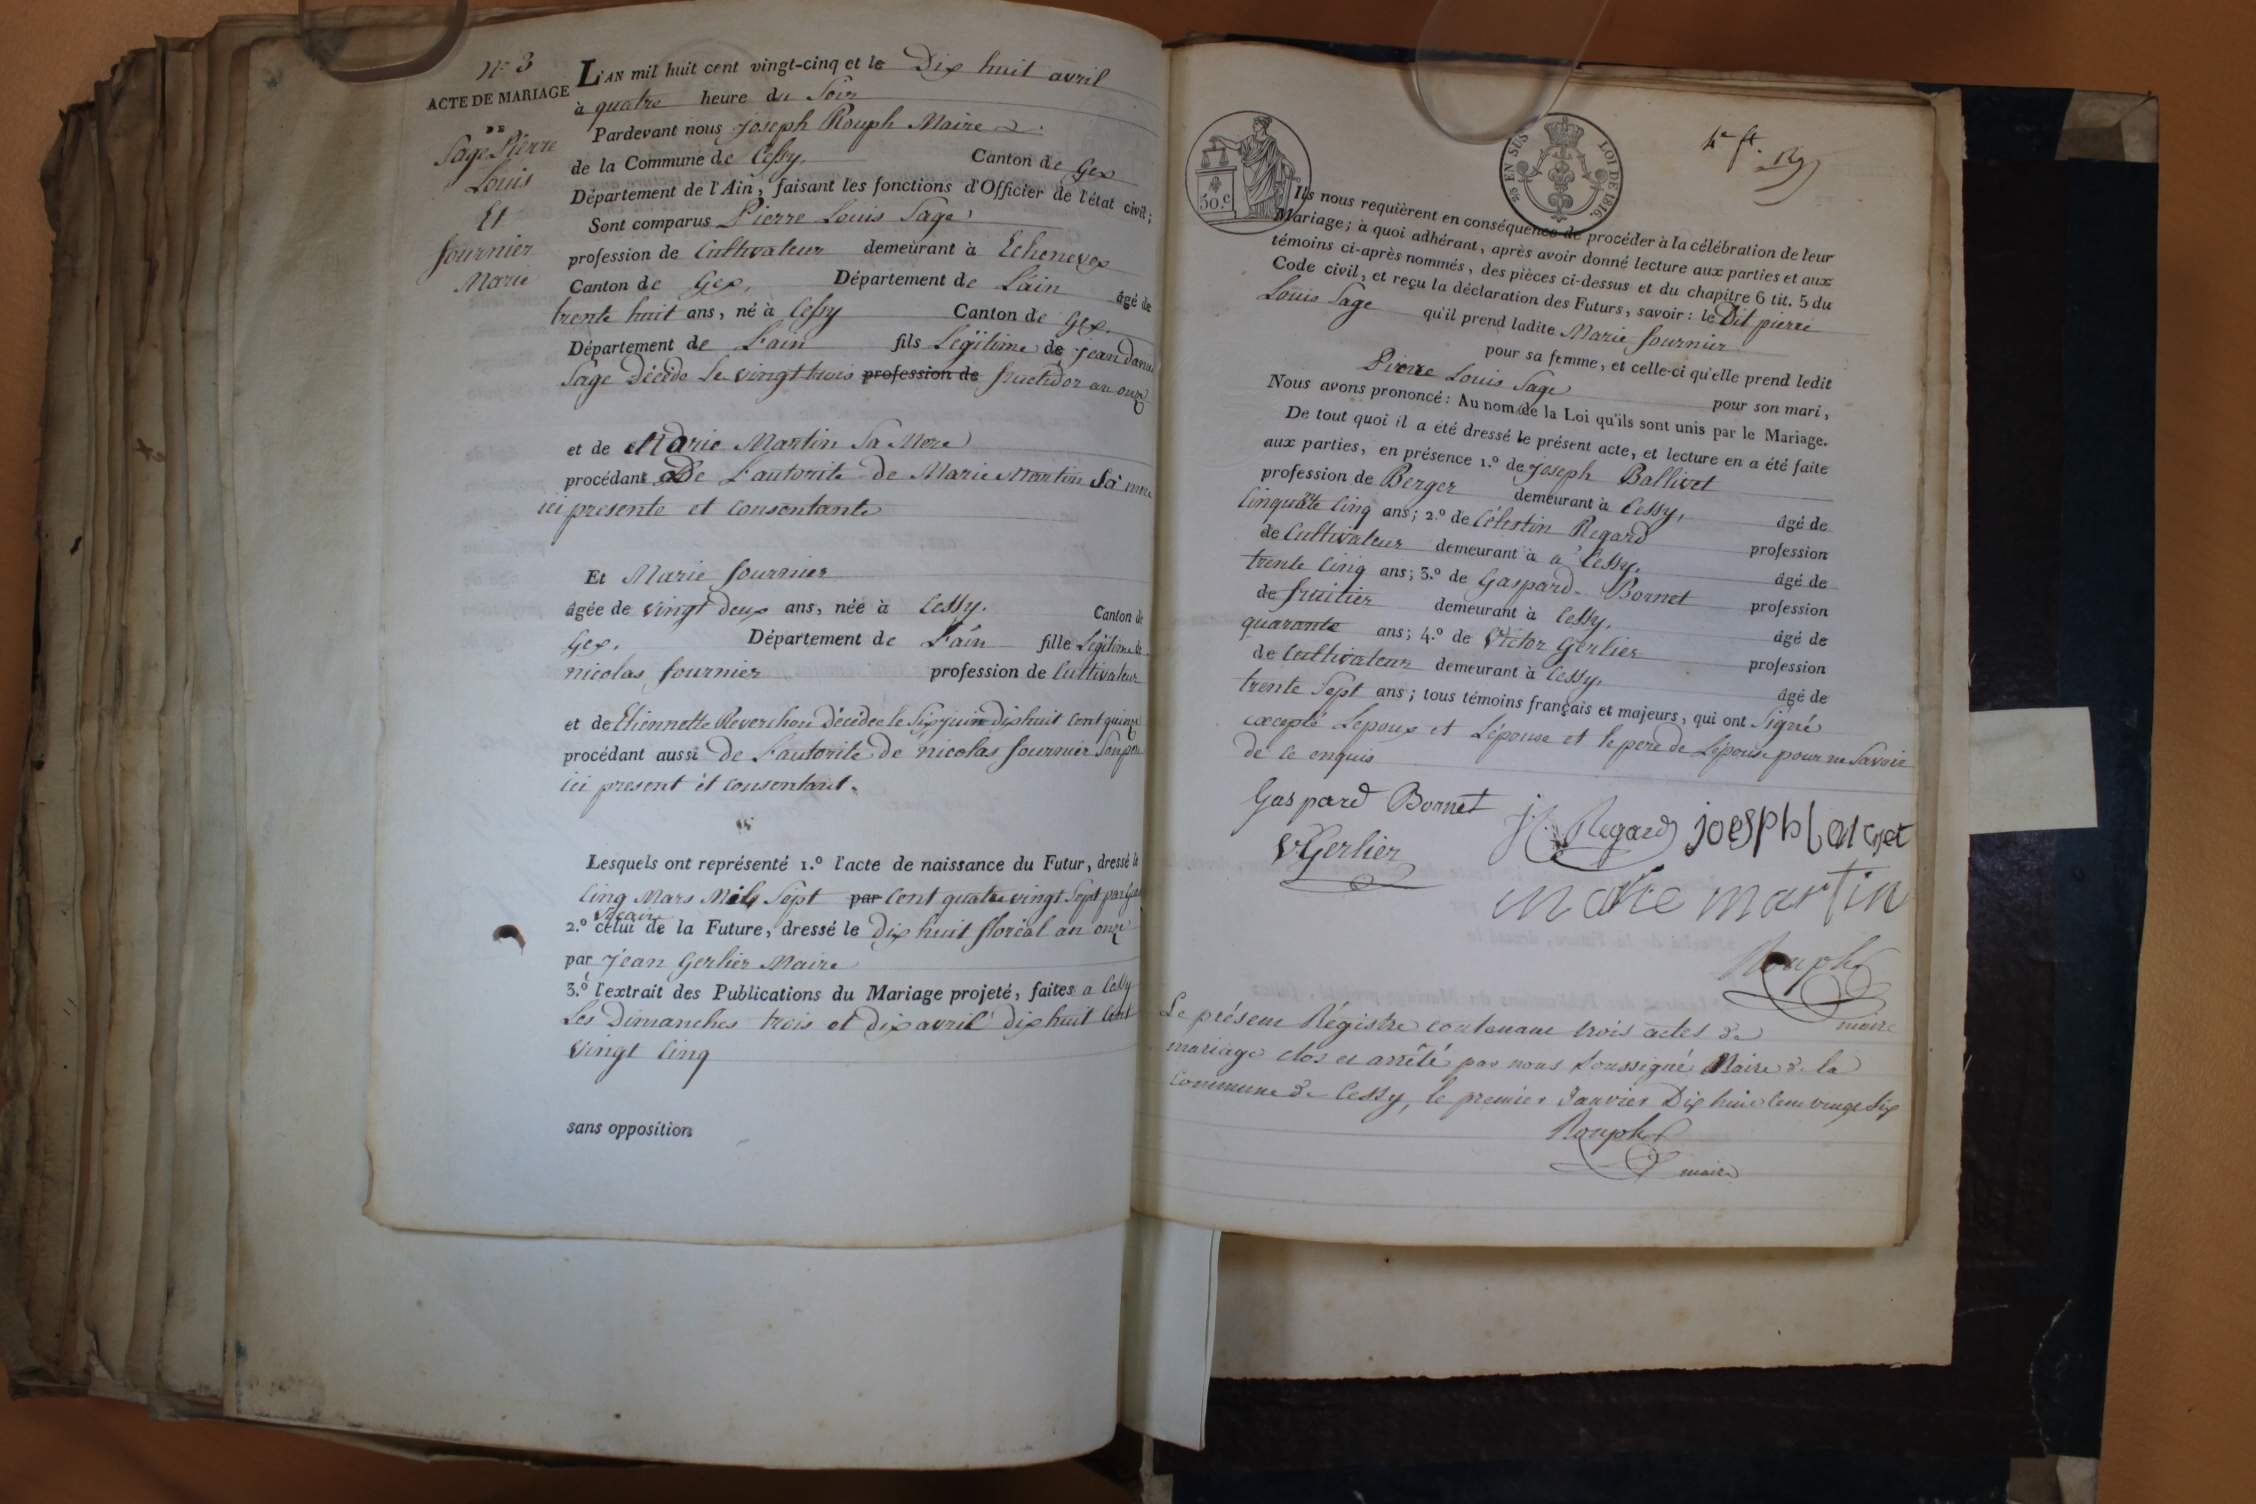 N° 3
ACTE DE MARIAGE
DE
Sage Pierre
Louis
Et
fournier
Marie
L'AN mil huit cent vingt-cinq et le Dix huit avril
à quatre heure du Soir
Pardevant nous Joseph Rouph Maire
de la Commune de Cessy, Canton de Gex
Département de l'Ain, faisant les fonctions d'Officier de l'état civil;
Sont comparus Pierre Louis Sage
profession de Cultivateur demeurant à Echenevex
Canton de Gex, Département de Lain âgé de
trente huit ans, né à Cessy Canton de Gex.
Département de Lain fils Légitime de jean daniel
Sage Décédé Le vingt trois profession de fructidor an onze
et de Marie Martin Sa Mere
procédant De Lautorité de Marie Martin Sa mere
ici presente et Consentante
Et Marie fournier
âgée de vingt deux ans, née à Cessy. Canton de
Gex. Département de Lain fille Légitime de
nicolas fournier profession de Cultivateur
et de Etiennette Reverchon décédée le Six juin dix huit Cent quinze
procédant aussi de Lautorité de nicolas fournier Son pere
ici present et Consentant.
Lesquels ont représenté 1.º l'acte de naissance du Futur, dressé le
Cinq Mars Mil Sept par Cent quatre vingt Sept par
vicaire
2.º celui de la Future, dressé le Dix huit floréal an onze
par Jean Gerlier Maire
3.º l'extrait des Publications du Mariage projeté, faites a Cessy
Les Dimanches trois et dix avril dix huit Cent
vingt Cinq
sans opposition
50.c
EN SUS
LOI DE 1816.
Ils nous requièrent en conséquence de procéder à la célébration de leur
Mariage; à quoi adhérant, après avoir donné lecture aux parties et aux
témoins ci-après nommés, des pièces ci-dessus et du chapitre 6 tit. 5 du
Code civil, et reçu la déclaration des Futurs, savoir: le Dit pierre
Louis Sage qu'il prend ladite Marie fournier
pour sa femme, et celle-ci qu'elle prend ledit
Pierre Louis Sage pour son mari,
Nous avons prononcé: Au nom de la Loi qu'ils sont unis par le Mariage.
De tout quoi il a été dressé le présent acte, et lecture en a été faite
aux parties, en présence 1.º de joseph Ballivet
profession de Berger demeurant à Cessy, âgé de
Cinquante Cinq ans; 2.º de Célestin Regard profession
de Cultivateur demeurant à a Cessy, âgé de
trente Cinq ans; 3.º de Gaspard Bornet profession
de fruitier demeurant à Cessy, âgé de
quarante ans; 4.º de Victor Gerlier profession
de Cultivateur demeurant à Cessy, âgé de
trente Sept ans; tous témoins français et majeurs, qui ont Signé
excepté Lepoux et Lépouse et le pere de Lépouse pour ne Savoir
de ce enquis
Gaspard Bornet
Regard
VGerlier
marie martin
Rouph
maire
Le présent Régistre contenant trois actes de
mariage clos et arrêté par nous Soussigné Maire de la
Commune de Cessy, le premier Janvier Dix huit Cent vingt Six
Rouph
maire